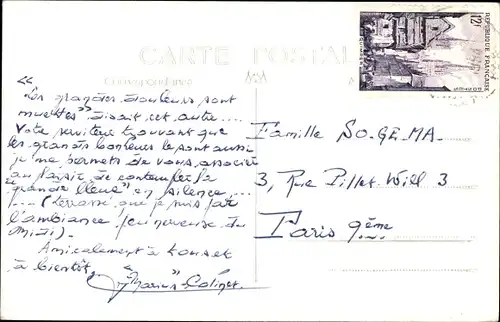 CARTE POSTALE
Correspondance
RÉPUBLIQUE FRANÇAISE
12F
"Les grandes douleurs sont
muettes" disait cet autre....
Votre serviteur trouvant que
les grands bonheurs le sont aussi
je me permets de vous associer
au plaisir de contempler la
"grande bleue" en silence....
.... (terrassé, que je suis par
l'ambiance peu nerveuse du
midi).
Amicalement à tous et
à bientôt.
"Marius"
Famille SO.GE.MA.
3, Rue Pillet-Will 3
Paris 9ème